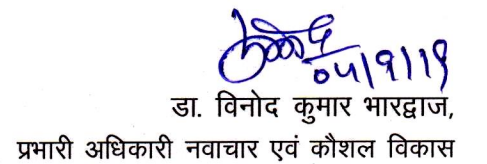 04/9/19
डा. विनोद कुमार भारद्वाज,
प्रभारी अधिकारी नवाचार एवं कौशल विकास